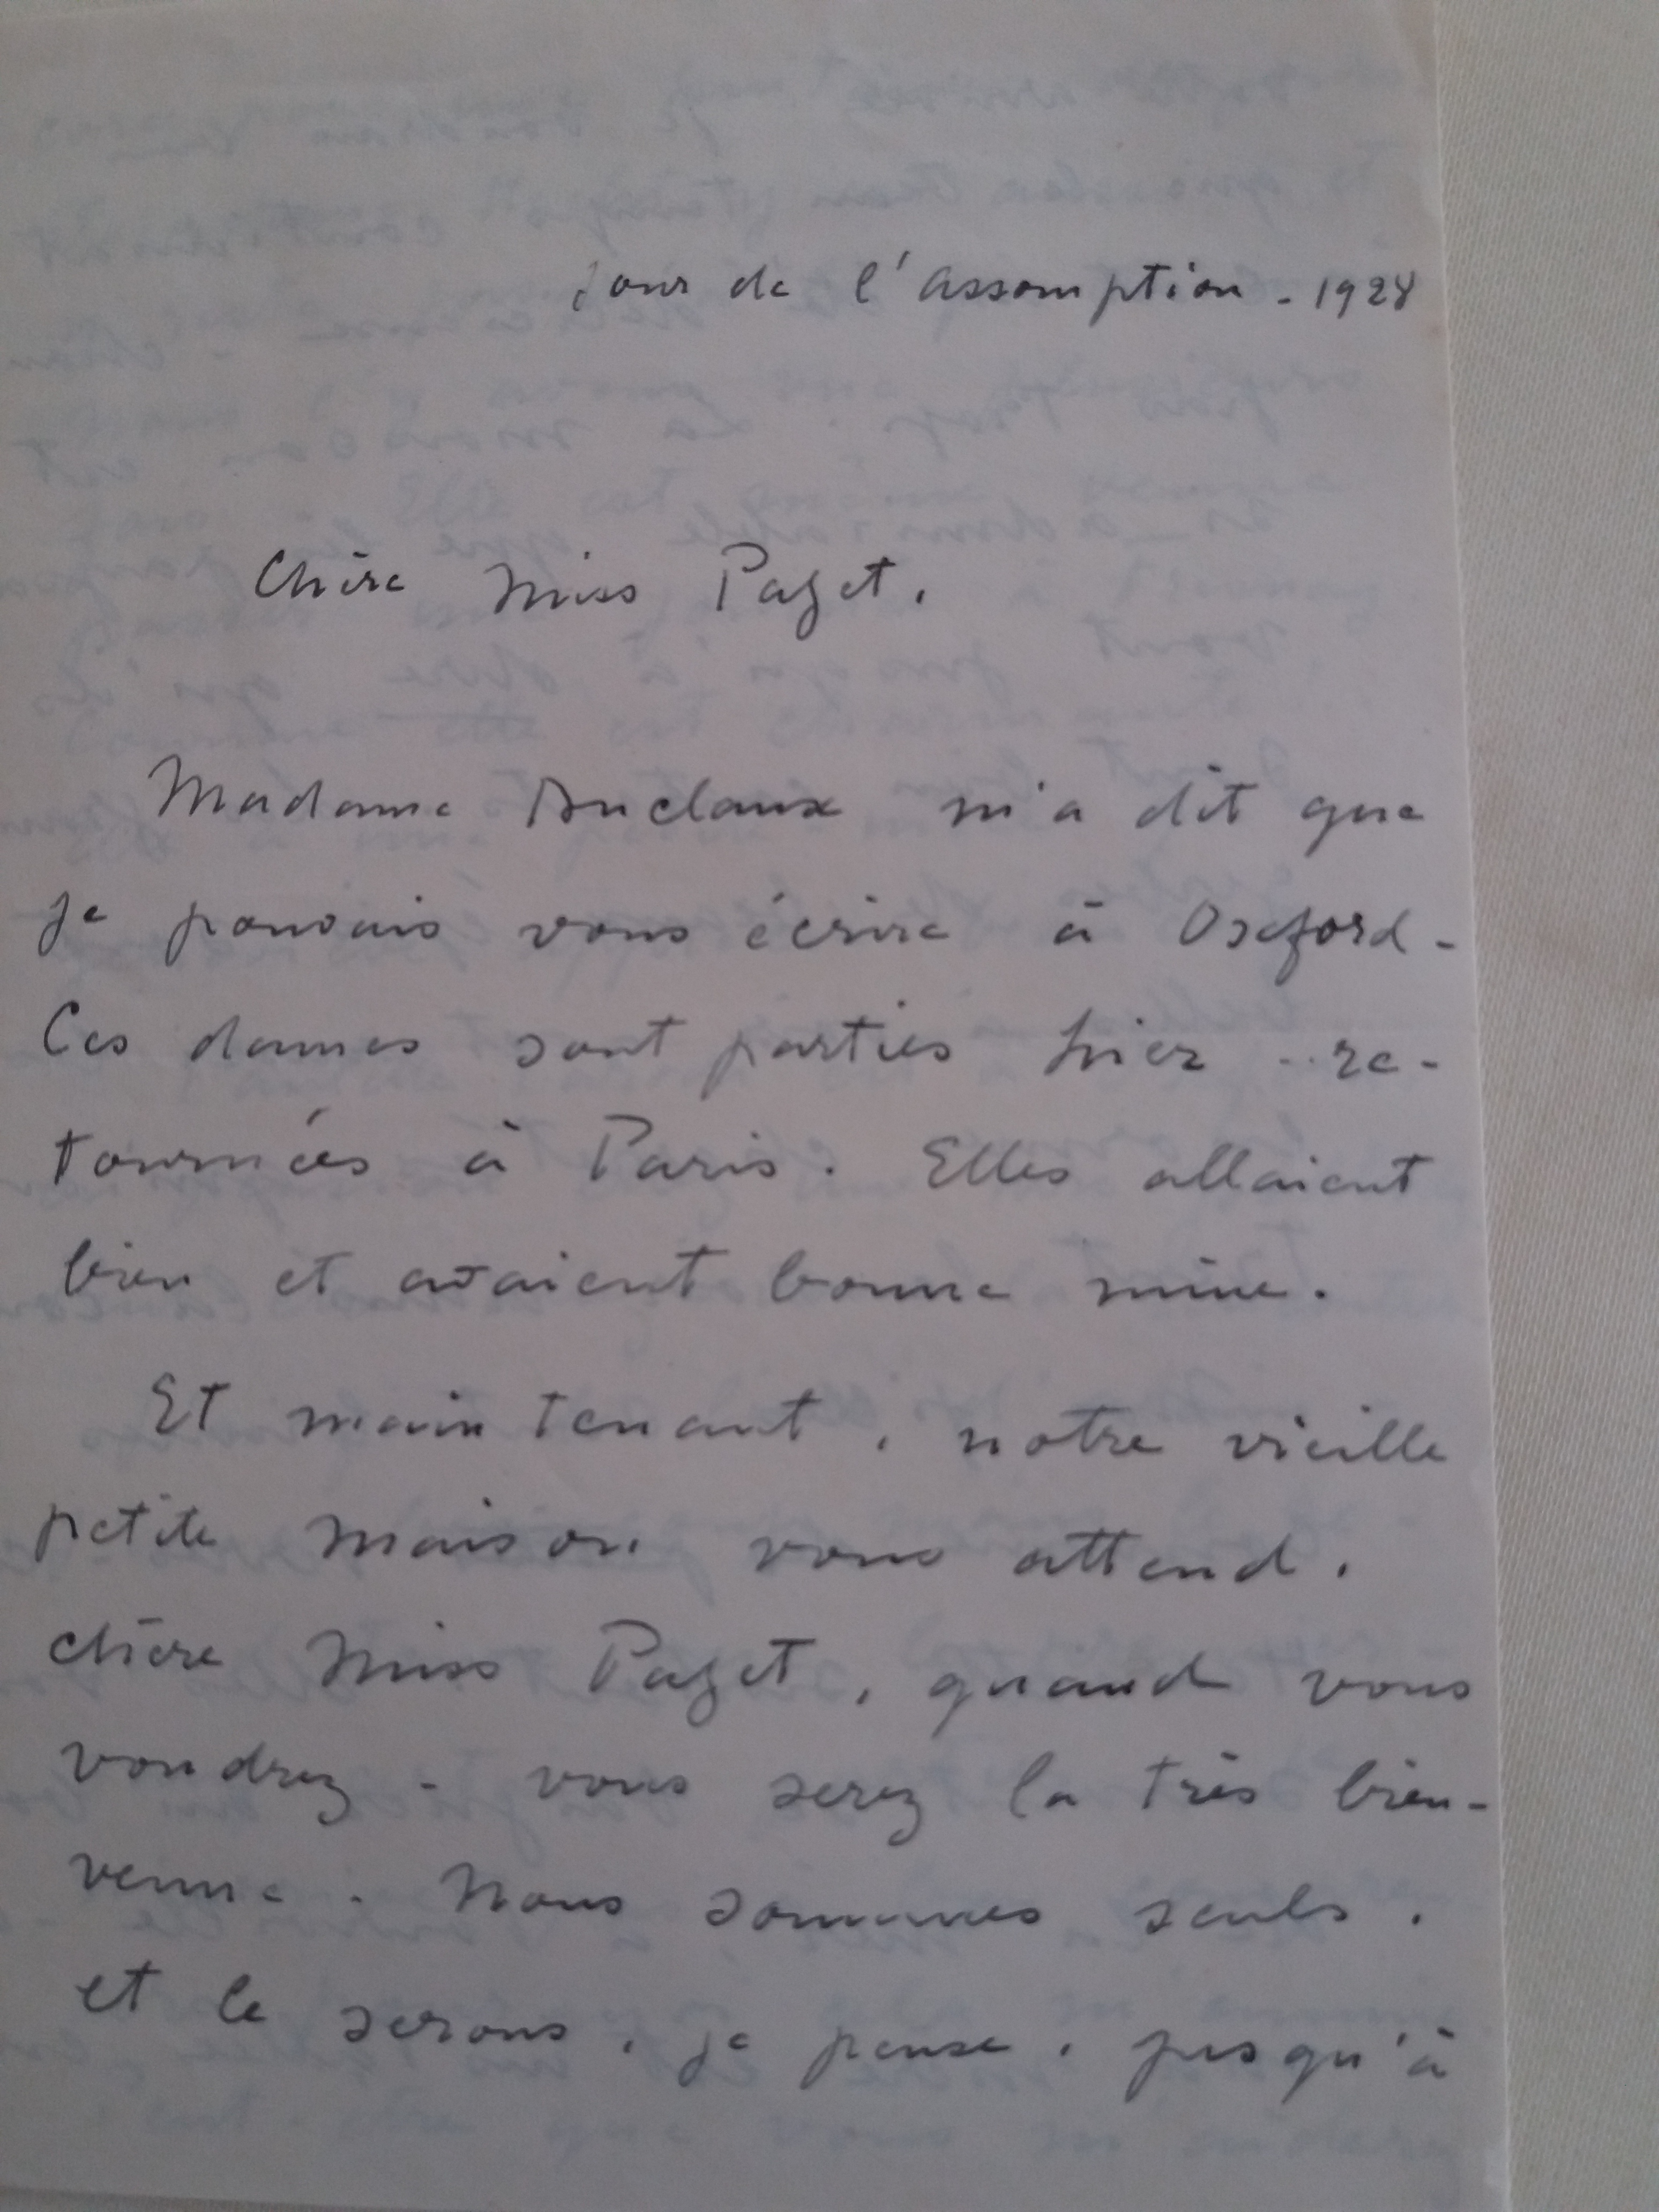 jour de l'assomption - 1928
Chère Miss Paget.
Madame Duclaux m'a dit que
je pouvais vous écrire à Oxford -
Ces dames sont parties hier - re-
tournées à Paris. Elles allaient
bien et avaient bonne mine.
Et maintenant, notre vieille
petite maison vous attend,
chère Miss Paget, quand vous
voudrez - vous serez la très bien-
venue. Nous sommes seuls,
et le serons, je pense, jusqu'à